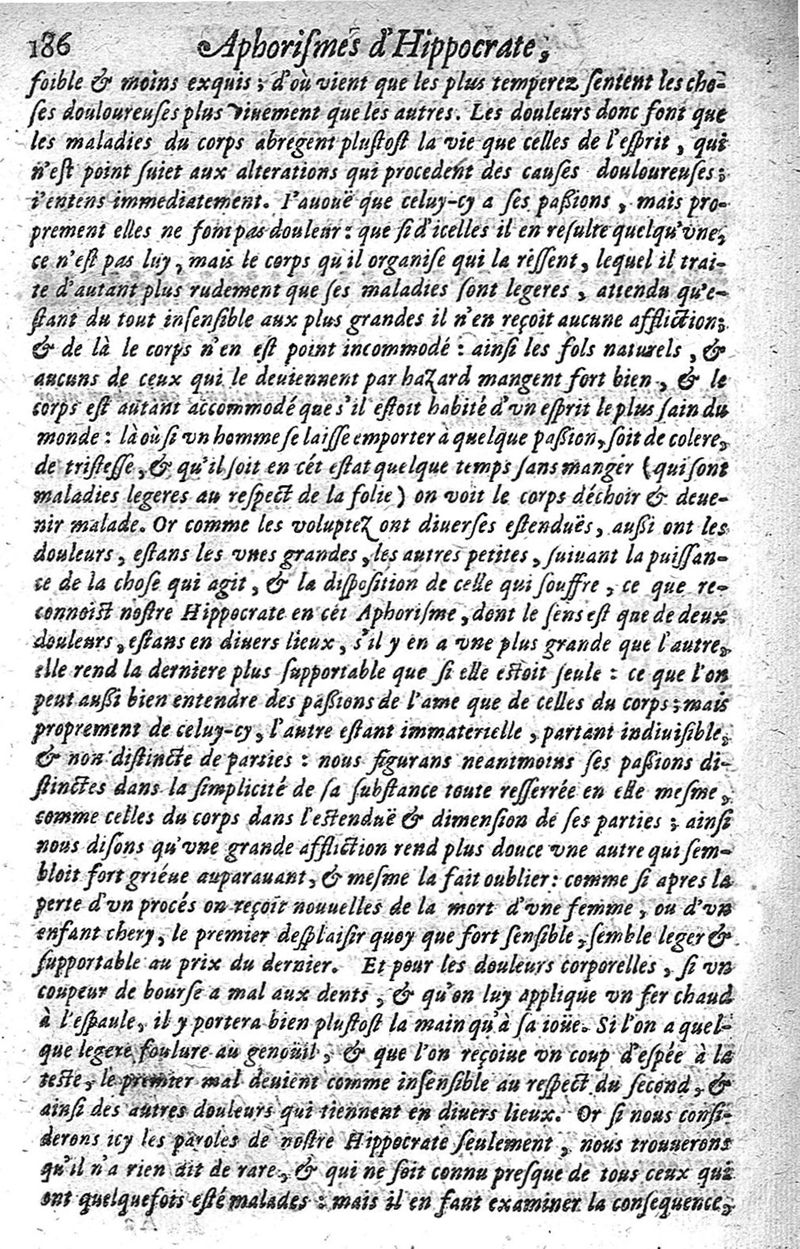 186 Aphoriſmes d'Hippocrate,
foible & moins exquis ; d'où vient que les plus temperez ſentent les cho-
ſes douloureuſes plus viuement que les autres. Les douleurs donc font que
les maladies du corps abregent pluſtoſt la vie que celles de l'eſprit, qui
n'eſt point ſuiet aux alterations qui procedent des cauſes douloureuſes ;
i'entens immediatement. I'auouë que celuy-cy a ſes paßions, mais pro-
prement elles ne font pas douleur : que ſi d'icelles il en reſulte quelqu'vne,
ce n'eſt pas luy, mais le corps qu'il organiſe qui la reſſent, lequel il trai-
te d'autant plus rudement que ſes maladies ſont legeres, attendu qu'e-
ſtant du tout inſenſible aux plus grandes il n'en reçoit aucune affliction ;
& de là le corps n'en eſt point incommodé : ainſi les fols naturels, &
aucuns de ceux qui le deuiennent par hazard mangent fort bien, & le
corps eſt autant accommodé que s'il eſtoit habité d'vn eſprit le plus ſain du
monde : là où ſi vn homme ſe laiſſe emporter à quelque paßion, ſoit de colere,
de triſteſſe, & qu'il ſoit en cét eſtat quelque temps ſans manger (qui ſont
maladies legeres au reſpect de la folie) on voit le corps déchoir & deue-
nir malade. Or comme les voluptez ont diuerſes eſtenduës, außi ont les
douleurs, eſtans les vnes grandes, les autres petites, ſuiuant la puiſſan-
ce de la choſe qui agit, & la diſpoſition de celle qui ſouffre, ce que re-
connoiſt noſtre Hippocrate en cét Aphoriſme, dont le ſens eſt que de deux
douleurs, eſtans en diuers lieux, s'il y en a vne plus grande que l'autre,
elle rend la derniere plus ſupportable que ſi elle eſtoit ſeule : ce que l'on
peut außi bien entendre des paßions de l'ame que de celles du corps ; mais
proprement de celuy-cy, l'autre eſtant immaterielle, partant indiuiſible,
& non diſtincte de parties : nous figurans neantmoins ſes paßions di-
ſtinctes dans la ſimplicité de ſa ſubſtance toute reſſerrée en elle meſme,
comme celles du corps dans l'eſtenduë & dimenſion de ſes parties ; ainſi
nous diſons qu'vne grande affliction rend plus douce vne autre qui ſem-
bloit fort griéue auparauant, & meſme la fait oublier : comme ſi apres la
perte d'vn procés on reçoit nouuelles de la mort d'vne femme, ou d'vn
enfant chery, le premier deſplaiſir quoy que fort ſenſible, ſemble leger &
ſupportable au prix du dernier. Et pour les douleurs corporelles, ſi vn
coupeur de bourſe a mal aux dents, & qu'on luy applique vn fer chaud
à l'eſpaule, il y portera bien pluſtoſt la main qu'à ſa iouë. Si l'on a quel-
que legere foulure au genoüil, & que l'on reçoiue vn coup d'eſpée à la
teſte, le premier mal deuient comme inſenſible au reſpect du ſecond, &
ainſi des autres douleurs qui tiennent en diuers lieux. Or ſi nous conſi-
derons icy les paroles de noſtre Hippocrate ſeulement, nous trouuerons
qu'il n'a rien dit de rare, & qui ne ſoit connu preſque de tous ceux qui
ont quelquefois eſté malades : mais il en faut examiner la conſequence,